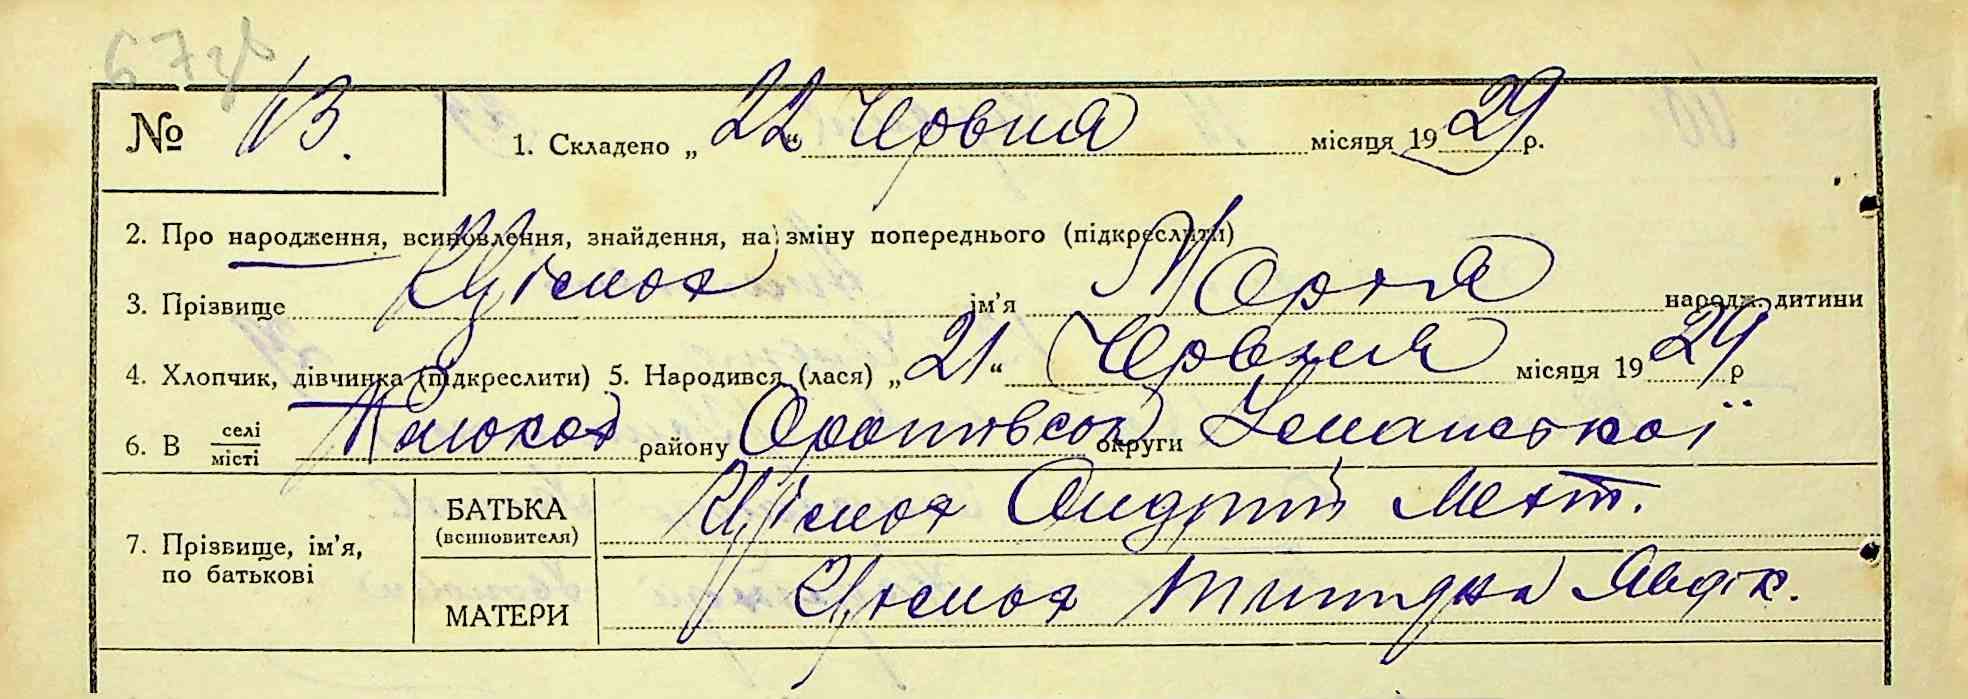 67зв
№ 13.
1. Складено „22“ Червня місяця 1929 р.
2. Про народження, всиновлення, знайдення, на зміну попереднього (підкреслити)
3. Прізвище ім’я Марія народж. дитини
4. Хлопчик, дівчинка (підкреслити) 5. Народився (лася) „21“ Червня місяця 1929 р
6. В селі місті району Оратівсько округи Уманської
7. Прізвище, ім’я, по батькові
БАТЬКА (всиновителя) Андрій
МАТЕРИ